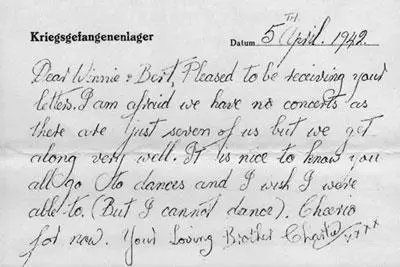 Kriegsgefangenenlager
Datum 5TH April. 1942.
Dear Winnie & Bert, Pleased to be receiving your
letters. I am afraid we have no concerts as
there are just seven of us but we get
along very well. It is nice to know you
all go to dances and I wish I were
able to. (But I cannot dance). Cheerio
for now. Your Loving Brother Charlie xxxx